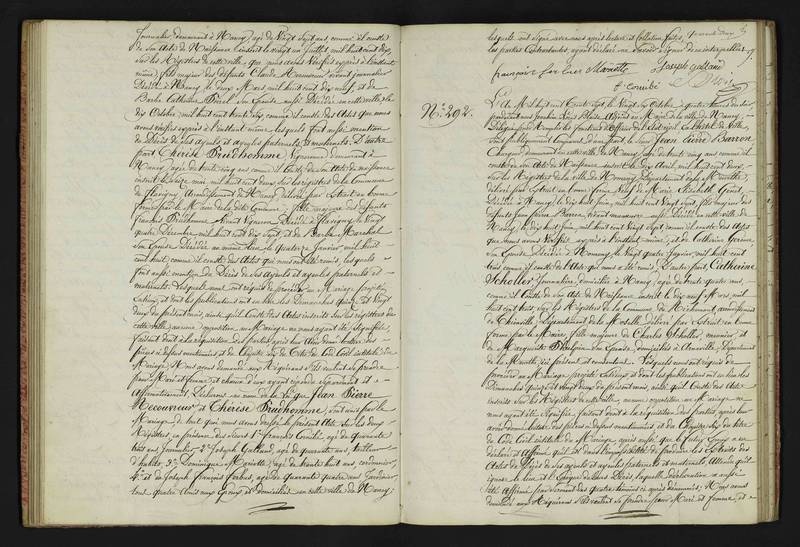 Journalier, demeurant à Nancy, âgé de Vingt sept ans, comme il conste
de son Acte de Naissance inscrit le vingt un Juillet mil huit cent dix,
sur les Registres de cette ville, que nous avons vérifié exprès à l'instant
même; fils majeur des défunts Claude Recouvreur vivant journalier
Décédé à Nancy, le deux Mars, mil huit cent dix neuf, et de
Barbe Catherine son épouse aussi Décédée en cette ville, le
dix Octobre, mil huit cent trente six, comme il conste des Actes que nous
avons vérifiés exprès à l'instant même, lesquels font aussi mention
du Décès de ses ayeuls et ayeules paternels et maternels. D'autre
part Thérèse Prudhomme, Vigneronne demeurant à
Nancy, âgée de trente cinq ans comme il conste de son Acte de naissance
inscrit le mil huit cent deux, sur les registres de la Commune
de Flavigny, Arrondissement de Nancy délivré par Extrait en bonne
forme par le Maire de la dite Commune; fille majeure des défunts
François Prudhomme vivant Vigneron Décédé à Flavigny, le Vingt
quatre Décembre mil huit cent dix sept, et de Barbe Marchal
son Epouse Décédée au même lieu le quatorze Janvier mil huit
cent huit, comme il conste des Actes qui nous ont été remis, lesquels
font aussi mention du Décès de ses Ayeuls et ayeules paternels et
maternels. Lesquels nous ont requis de procéder au Mariage projetté
entr'eux, et dont les publications ont eu lieu les Dimanches quinze et Vingt
deux du présent mois, ainsi qu'il Conste des Actes inscrits sur les registres de
cette ville, aucune opposition au Mariage ne nous ayant été signifiée,
faisant droit à la réquisition des parties, après leur avoir donné lecture des
pièces ci dessus mentionnées et du Chapitre six du Titre du Code Civil intitulé du
Mariage. Nous avons demandé aux Requérans s'ils veulent se prendre
pour Mari et femme, et chacun d'eux ayant répondu séparément et
Affirmativement, Déclarons au nom de la loi que Jean Pierre
Recouvreur et Thérèse Prudhomme, sont unis par le
Mariage; de tout quoi nous avons dressé le présent Acte sur les deux
Registres, en présence des sieurs 1° François Combé, âgé de quarante
trois ans Journalier, 2° Joseph Galland, âgé de quarante ans, tailleur
d'habits, 3° Dominique Mariotte, âgé de trente huit ans cordonnier,
4° et de Joseph François Forbier, âgé de quarante quatre ans Jardinier
tous quatre Amis aux Epoux, et domiciliés en cette ville de Nancy,
lesquels ont signé avec nous après lecture et collation faites,
les parties Contractantes ayant déclaré ne Savoir Signer de ce interpellées
françois forbier Mariotte Joseph galland
f. Combé
N° 292.
L'An Mil huit cent Trente sept, le Vingt six Octobre à quatre heures du soir
pardevant nous Blaise, Adjoint au Maire de la ville de Nancy,
Délégué pour remplir les fonctions d'Officier de l'état civil en l'hôtel de Ville,
sont publiquement comparus, d'une part, le Sieur Jean Pierre Barron
demeurant en cette ville de Nancy, âgé de trente cinq ans comme il
conste de son Acte de Naissance inscrit le dix Avril mil huit cent deux,
sur les Registres de la ville de Département de la Meurthe,
délivré par Extrait en bonne forme, Veuf de Marie Elisabeth
Décédée à Nancy, le dix huit Juin, mil huit cent Vingt sept, fils majeur des
défunts Jean Pierre Barron, vivant manœuvre aussi Décédé en cette ville de
Nancy, le dix huit Juin, mil huit cent Vingt sept comme il conste des Actes
que nous avons Vérifiés exprès à l'instant même, et de Catherine
son Epouse, Décédée à Nomeny, le Vingt quatre Janvier mil huit cent
trois comme il conste de l'Acte qui nous a été remis. D'autre part, Catherine
Scholler, Journalière, domiciliée à Nancy, âgée de trente quatre ans,
comme il Conste de son Acte de Naissance inscrit le dix neuf Mars, mil
huit cent trois, sur les Registres de la Commune de Richemont, arrondissement
de Thionville, Département de la Moselle, délivré par Extrait en bonne
forme par le Maire; fille majeure de Charles Scholler, meunier, et
de Marguerite son Epouse, domiciliés à Département
de la Meurthe, ici présent et consentant. Lesquels nous ont requis de
procéder au Mariage projetté entr'eux et dont les publications ont eu lieu les
Dimanches quinze et vingt deux du présent mois, ainsi qu'il Conste des Actes
inscrits sur les Registres de cette ville, aucune opposition au Mariage ne
nous ayant été signifiée, faisant droit à la réquisition des parties, après leur
avoir donné lecture des pièces ci dessus mentionnées et du Chapitre six du titre
du Code Civil intitulé du Mariage, après aussi que le futur Epoux a eu
déclaré et Affirmé qu'il est dans l'impossibilité de produire les Extraits des
Actes de Décès de ses ayeuls et ayeules paternels et maternels, Attendu qu'il
ignore le lieu et l'époque de leurs Décès, laquelle déclaration a aussi
été affirmée par serment des quatre témoins ci après dénommés; Nous avons
demandé aux Requérans s'ils veulent se prendre pour Mari et femme, et